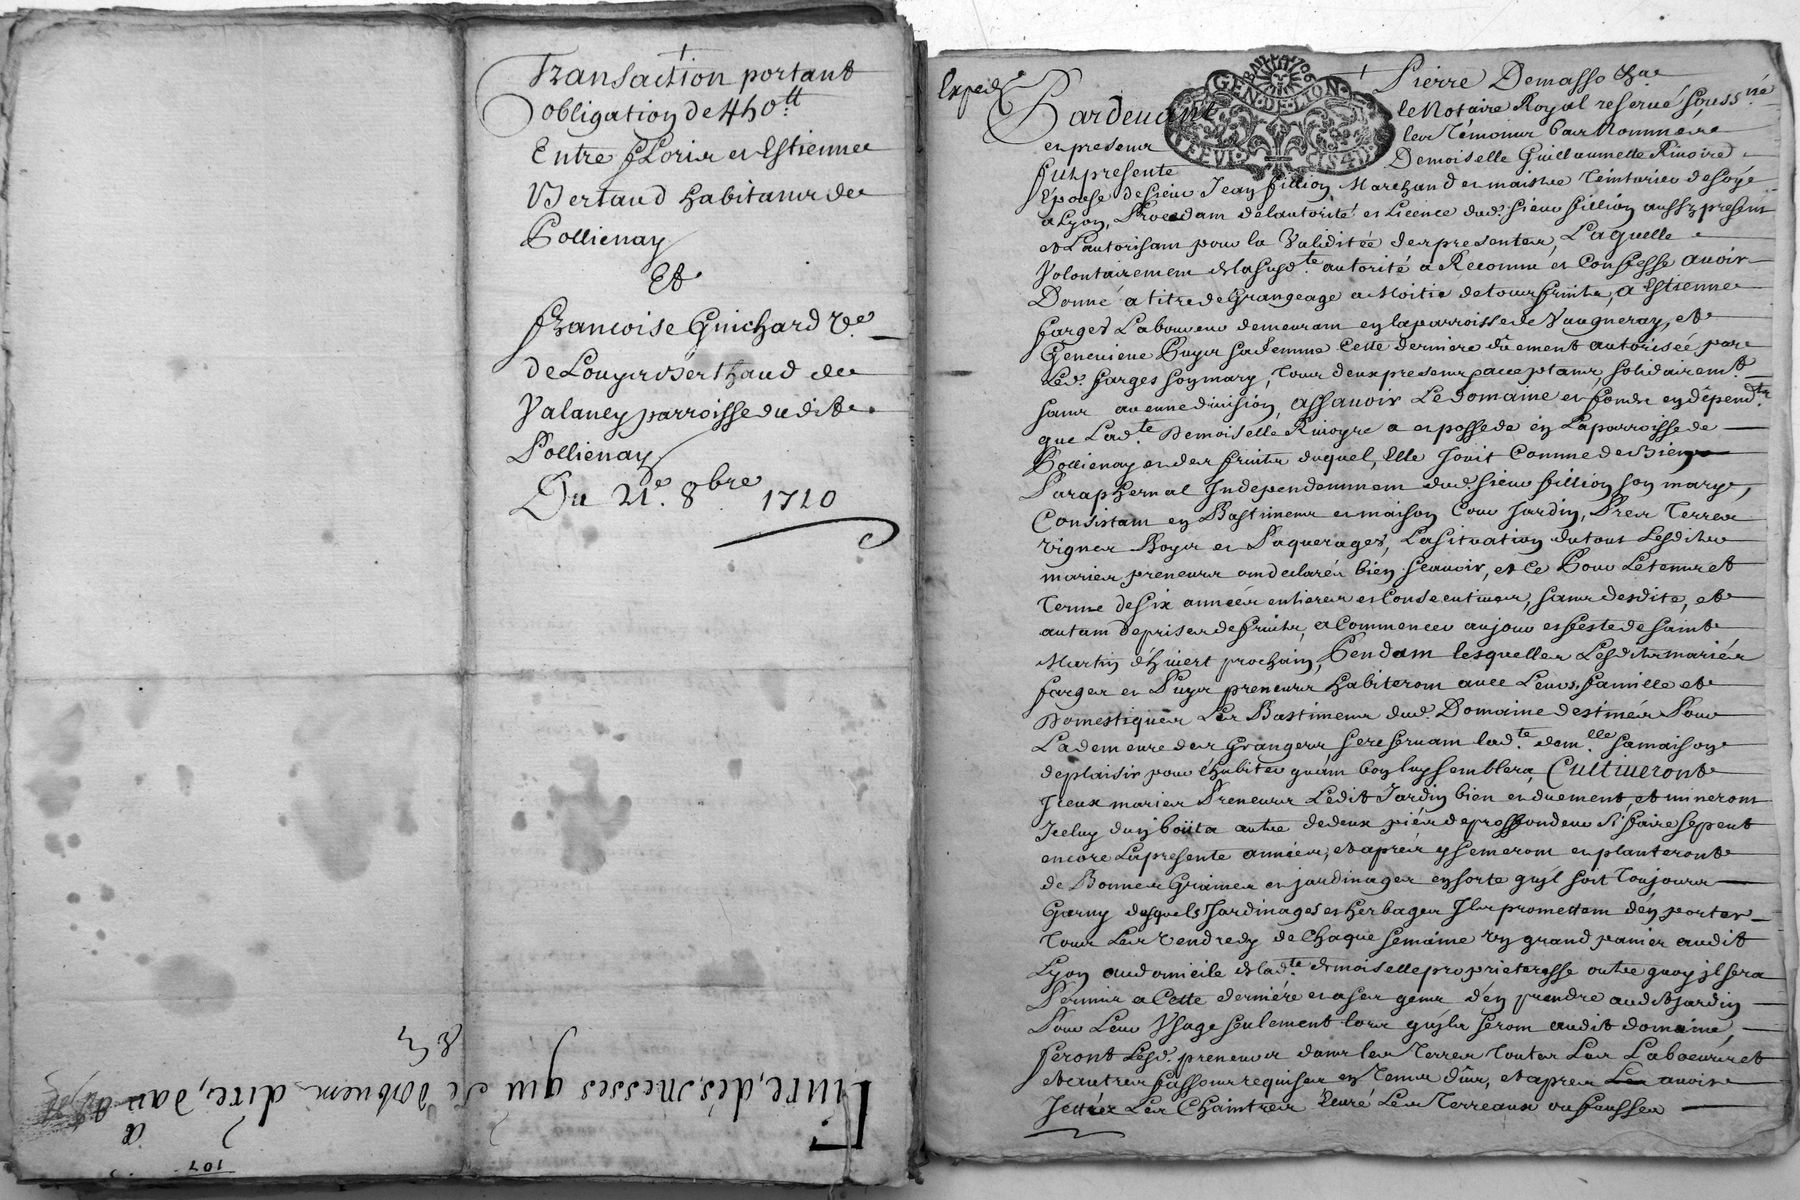 Transaction portant
obligation de 450tt
Entre fLoris et Estienne
Bertaud habitans de
Pollienay
Et
francoise Guichard ve
de Louys Berthaud de
Valaney parroisse dudit
Pollienay
Du 21e. 8bre 1710
Livre, dés, Messes qui se doivuem dire, dan
a
107
Exped
GEN·DE·LYON
Pardeuant Pierre Demasso
le Notaire Royal reserué souss.né
les Temoins bas Nommés
en presens
Demoiselle Guillaumette Riuoire
fut presente
Epouse de sieur Jean fillion, Marchand et maistre Teinturier de soye
a Lyon, Procedam de lautorité et Licence dud. sieur fillion aussy present
et Lautorisam pour la Validitée des presentes, Laquelle
Volontairement de la susd.te autorité a Reconnu et Confessé auoir
Donné a titre de Grangeage a Moitié de tous fruits, a Estienne
farges Laboureur demeuram en la parroisse de Vaugneray, et
Geneuieue Puys sa femme Cette derniere dûement autorisée par
Led. farges son mary, Tous deux presens et acceptans, solidairem.t
sans aucune diuision, assauoir Le domaine et fonds en dêpend.ts
que Lad.te Demoiselle Riuoyre a et possede en La parroisse de
Pollienay et des fruits duquel, Elle Jouit Comme de Bien
Paraphernal Independemmem dud. sieur fillion son mary,
Consistam en Bastimens et maison Cour Jardin, Prés Terres
vignes Boys et Paquerages, La situation du tout Lesdits
mariés preneurs om declarés bien scauoir, et Ce Pour Le tems et
Terme de six années entieres et Consecutiues, sans desdite, et
autam de prises de fruits, a Commencer au jour et feste de saint
Martin d'hiuert prochain, Pendam lesquelles Lesdits mariés
farges et Puys preneurs habiterom auec Leurs famille et
Domestiques Les Bastimens dud. Domaine destinés Pour
La demeure des Grangers se reseruam lad.te dem.lle sa maison
de plaisir pour l'habiter quam bon luy semblera, Cultiueront
Jceux mariés Preneurs Ledit Jardin bien et duement, et minerom
Jceluy d'un boüt a autre de deux piés de proffondeur si faire se peut
encore La presente année, et aprés y semerom et planteront
de Bonnes Graines et jardinages en sorte qu'jl soit Toujours
Garny desquels Jardinages et herbages Jls promettem d'en porter
Tous Les Vendredy de Chaque semaine Vn grand panier audit
Lyon au domicile de lad.te demoiselle proprieteresse outre quoy jl sera
Permis a Cette derniére et a ses gens d'en prendre audit Jardin
Pour Leur Vsage seulement lors qu'jls serom audit domaine,
feront Lesd. preneurs dans les Terres Toutes Les Laboeures et
et autres fassons requises en Tems dûs, et apres auoir
Jettés Les Chaintres Curé Les Terreaux ou fosses